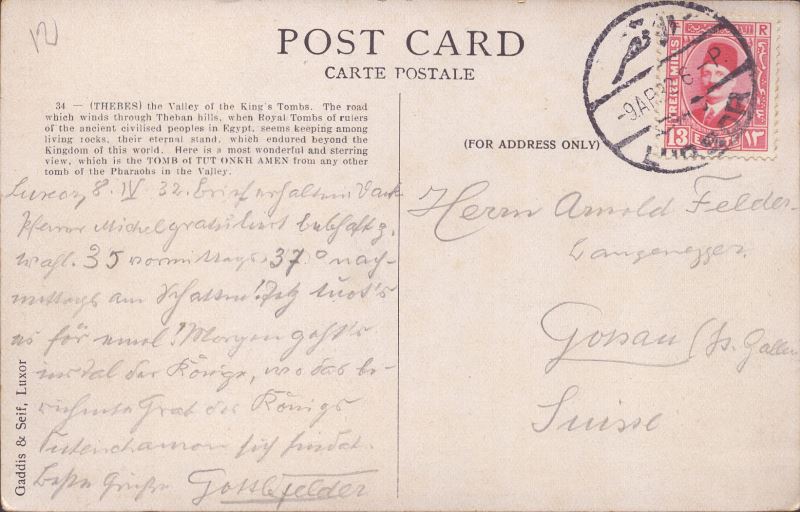 POST CARD
CARTE POSTALE
34 — (THEBES) the Valley of the King's Tombs. The road
which winds through Theban hills, when Royal Tombs of rulers
of the ancient civilised peoples in Egypt, seems keeping among
living rocks, their eternal stand, which endured beyond the
Kingdom of this world. Here is a most wonderful and sterring
view, which is the TOMB of TUT ONKH AMEN from any other
tomb of the Pharaohs in the Valley.
Luxor, 8. IV 32. Brief erhalten Dank
Pfarrer Michel gratuliert
Wahl. 35 vormittags, 37° nach-
mittags am Schatten! Jetz tuot's
es för emol! Morgen geht's
ins Tal der Könige, wo das be-
rühmte Grab des Königs
Tutenchamon sich findet.
Beste Grüße Gottl. Felder
Gaddis & Seif, Luxor
(FOR ADDRESS ONLY)
Herrn Arnold Felder-
Langenegger.
Gossau (St. Gallen
Suisse
LUXOR
13
١٣